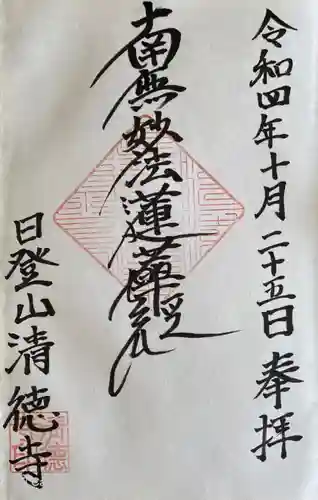 令和四年十月二十五日 奉拝
南無妙法蓮華経
日登山清徳寺